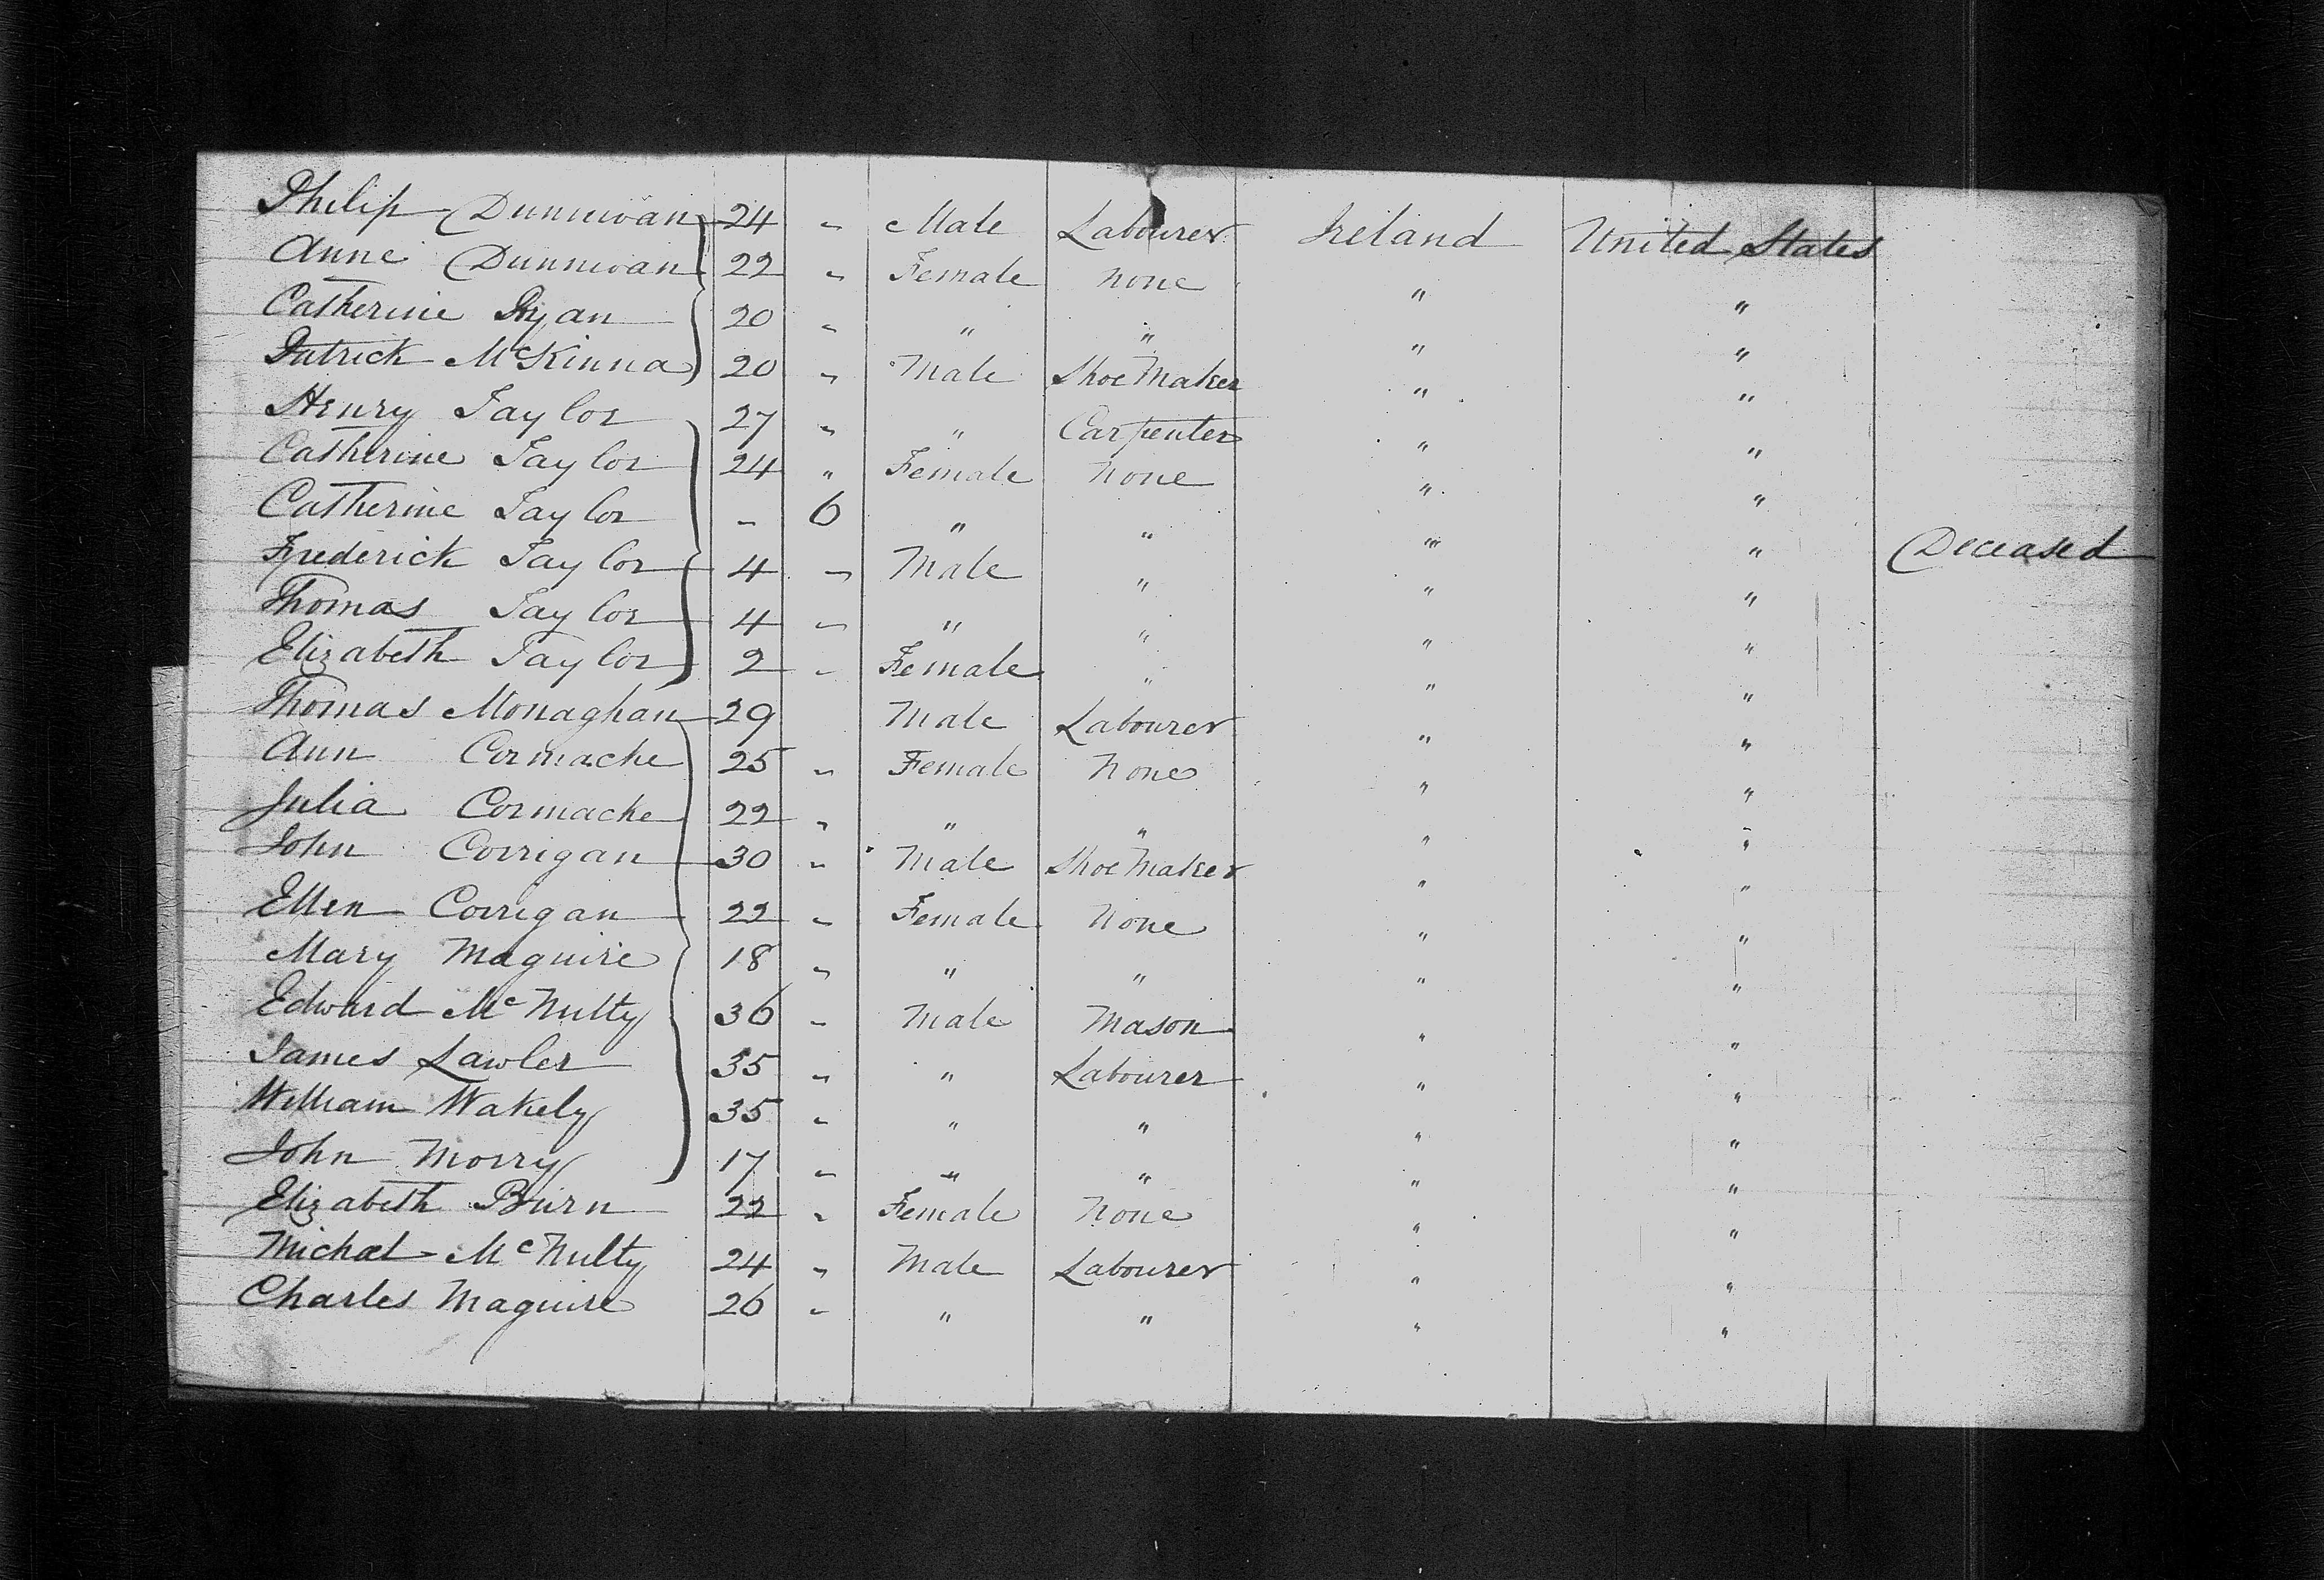 Philip Dunnivan 24 " Male Labourer Ireland United States
Anne Dunnivan 22 " Female None " "
Catherine Ryan 20 " " " " "
Patrick McKinna 20 " Male Shoe Maker " "
Henry Taylor 27 " " Carpenter " "
Catherine Taylor 24 " Female None " "
Catherine Taylor " 6 " " " " Deceased
Frederick Taylor 4 " Male " " "
Thomas Taylor 4 " " " " "
Elizabeth Taylor 2 " Female " " "
Thomas Monaghan 29 Male Labourer " "
Ann Cormacke 25 " Female None " "
Julia Cormacke 22 " " " " "
John Corrigan 30 " Male Shoe Maker " "
Ellen Corrigan 22 " Female None " "
Mary Maguire 18 " " " " "
Edward McNulty 36 " Male Mason " "
James Lawler 35 " " Labourer " "
William Wakely 35 " " " " "
John Morry 17 " " " " "
Elizabeth Burn 22 " Female None " "
Michal McNulty 24 " Male Labourer " "
Charles Maguire 26 " " " " "